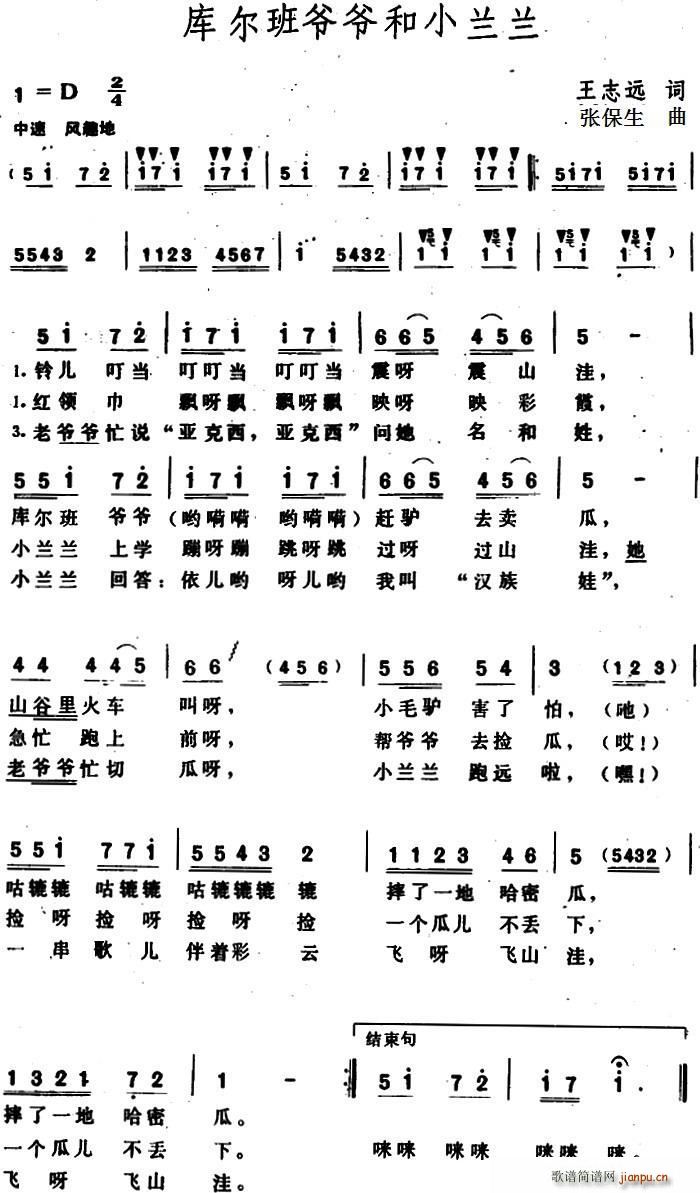 库尔班爷爷和小兰兰
1 = D 2/4
王志远 词
中速 风趣地
张保生 曲
(5 1 7 2 | 1 7 1 1 7 1 | 5 1 7 2 | 1 7 1 1 7 1 :5171 5171
5543 2 | 1123 4567 | 1 5432 | 1 1 1 1 | 1 1 1 1 )
5 1 7 2 | 1 7 1 1 7 1 | 6 6 5 4 5 6 | 5 - |
1.铃儿 叮当 叮叮当 叮叮当 震呀 震 山 洼,
1.红领 巾 飘呀飘 飘呀飘 映呀 映彩 霞,
3.老爷爷忙说“亚克西,亚克西”问她 名 和 姓,
5 5 1 7 2 | 1 7 1 1 7 1 | 6 6 5 4 5 6 | 5 - |
库尔班 爷爷 (哟嗬嗬 哟嗬嗬) 赶驴 去卖 瓜,
小兰兰 上学 蹦呀蹦 跳呀跳 过呀 过山 洼,她
小兰兰 回答:依儿哟 呀儿哟 我叫 “汉族 娃”,
4 4 4 4 5 | 6 6 (4 5 6) | 5 5 6 5 4 | 3 (1 2 3) |
山谷里火车 叫呀, 小毛驴 害了 怕,(咃)
急忙 跑上 前呀, 帮爷爷 去捡 瓜,(哎!)
老爷爷忙切 瓜呀, 小兰兰 跑远 啦,(嘿!)
5 5 1 7 7 1 | 5 5 4 3 2 | 1 1 2 3 4 6 | 5 (5432) |
咕辘辘 咕辘辘 咕辘辘辘 辘 摔了一地 哈密 瓜,
捡 呀 捡 呀 捡 呀 捡 一个瓜儿 不丢 下,
一 串 歌 儿 伴着彩 云 飞 呀 飞山 洼,
结束句
1 3 2 1 7 2 | 1 - :| 5 1 7 2 | 1 7 1. ‖
摔了一地 哈密 瓜。
一个瓜儿 不丢 下。 咪咪 咪咪 咪咪 咪。
飞 呀 飞山 洼。
歌谱简谱网 jianpu.cn